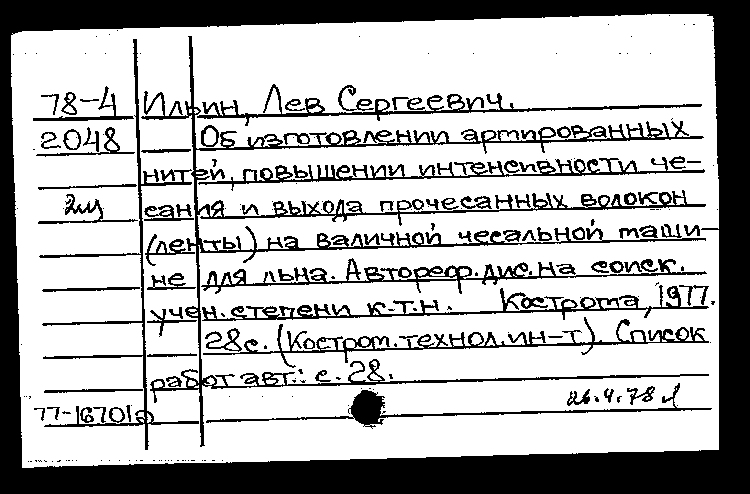 78-4 Ильин, Лев Сергеевич.
2048 Об изготовлении армированных
нитей, повышении интенсивности че-
2из сания и выхода прочесанных волокон
(ленты) на валичной чесальной маши-
не для льна. Автореф. дис. на соиск.
учен. степени к.т.н. Кострома, 1977.
28с. (Костром. технол. ин-т). Список
работ авт.: с. 28.
77-16701а 26.4.78